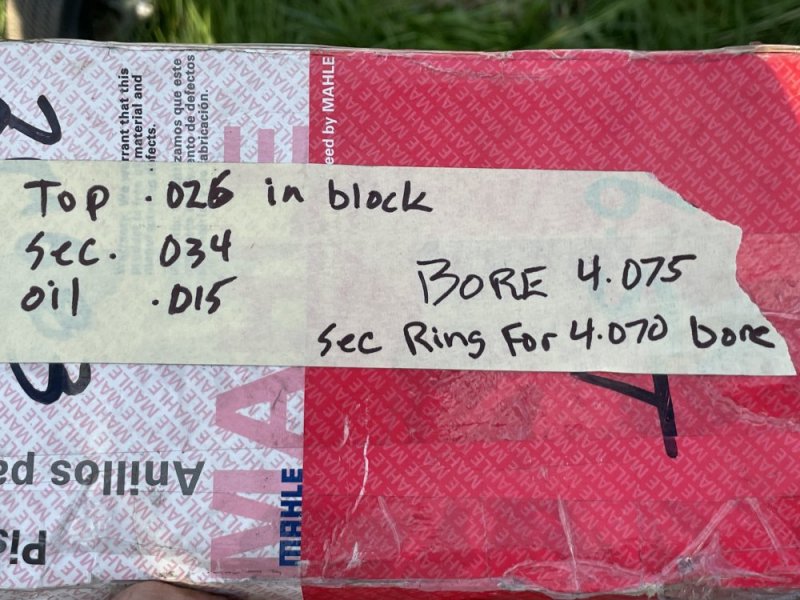 Top .026 in block
Sec. 034
oil .015
BORE 4.075
Sec Ring For 4.070 bore
rrant that this
material and
fects.
zamos que este
nto de defectos
abricación.
eed by MAHLE
MAHLE
Anillos pa
Pis